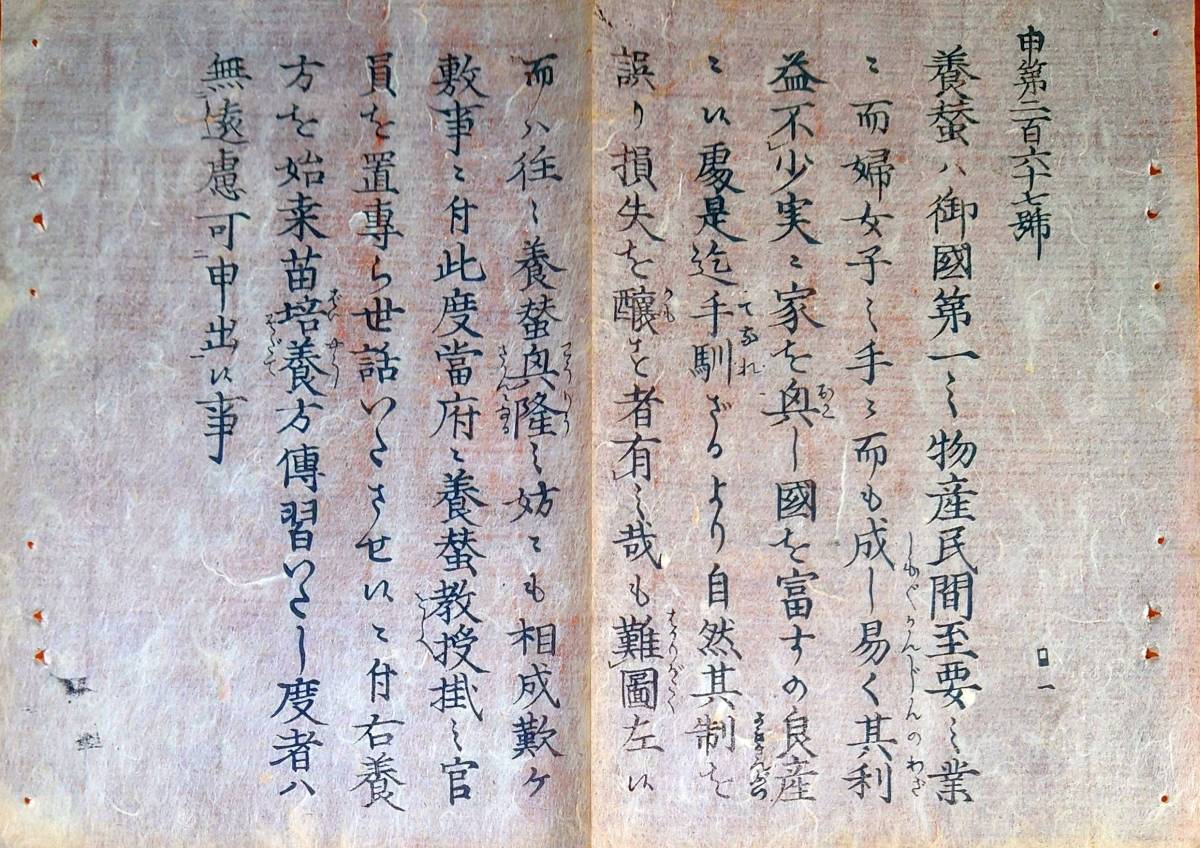 申第二百六十七號
養蚕ハ御國第一之物産民間至要之業
ニ而婦女子之手ニ而も成し易く其利
益不少実ニ家を興し國を富すの良産
ニ候處是迄手馴ざるより自然其制を
誤り損失を醸す者有之哉も難圖左候
而ハ往々養蚕興隆之妨ニも相成歎ケ
敷事ニ付此度當府ニ養蚕教授掛之官
員を置専ら世話いたさせ候ニ付右養
方を始桒苗培養方傳習いたし度者ハ
無遠慮可申出候事